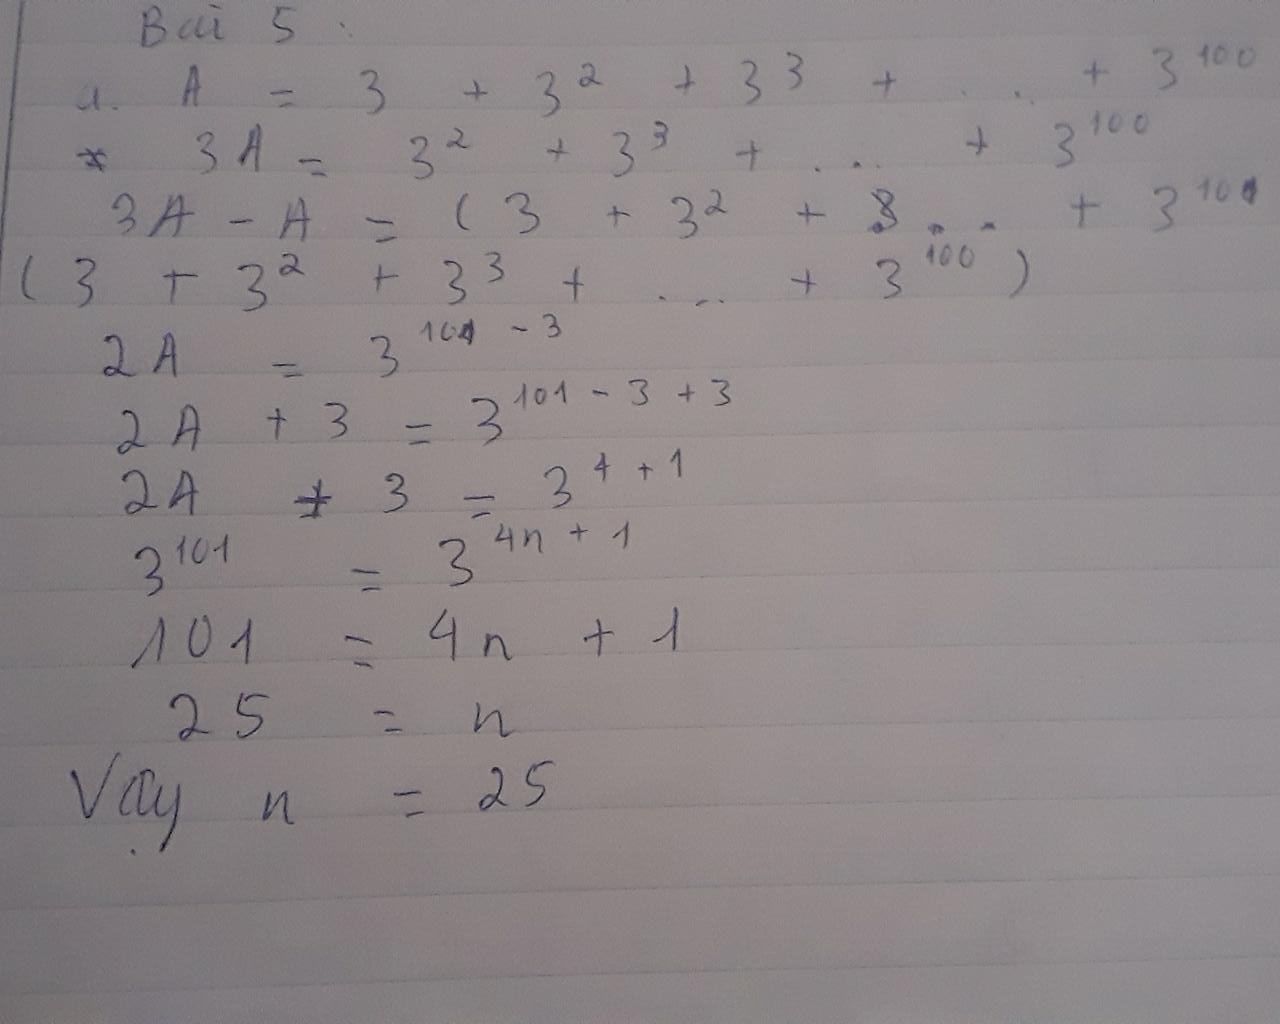 Bài 5 :
a. A = 3 + 3² + 3³ + ... + 3¹⁰⁰
* 3A = 3² + 3³ + ... + 3¹⁰⁰
3A - A = ( 3 + 3² + 3 ... + 3¹⁰¹
( 3 + 3² + 3³ + ... + 3¹⁰⁰ )
2A = 3¹⁰¹ ⁻ ³
2A + 3 = 3¹⁰¹ ⁻ ³ ⁺ ³
2A + 3 = 3⁴ ⁺ ¹
3¹⁰¹ = 3⁴ⁿ ⁺ ¹
101 = 4n + 1
25 = n
Vậy n = 25